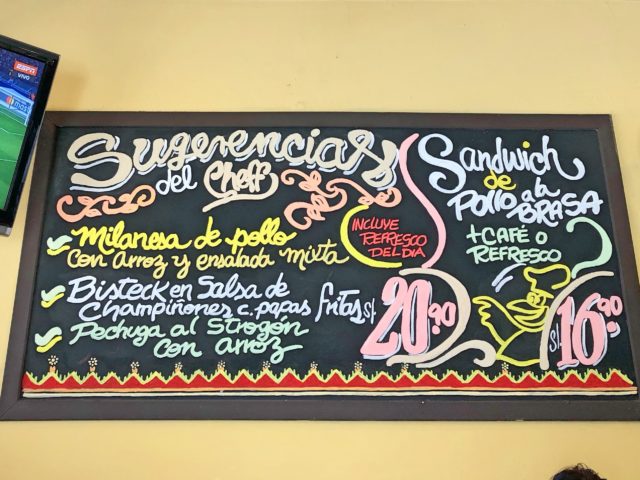 ESPN
VIVO
Sugerencias
del Cheff
Milanesa de pollo
con Arroz y ensalada mixta
Bisteck en Salsa de
Champiñones c. papas fritas
Pechuga al Strogón
con arroz
INCLUYE
REFRESCO
DEL DIA
S/. 20.90
Sandwich
de
Pollo a la
BRASA
+ CAFÉ O
REFRESCO
S/. 16.90